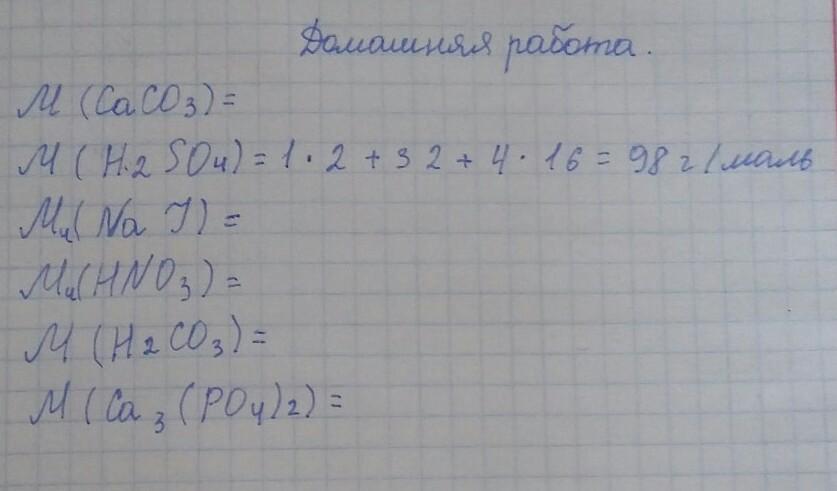 Домашняя работа.
M (CaCO3) =
M (H2SO4) = 1 · 2 + 32 + 4 · 16 = 98 г/маль
Mч(NaJ) =
Mч(HNO3) =
M (H2CO3) =
M (Ca3(PO4)2) =